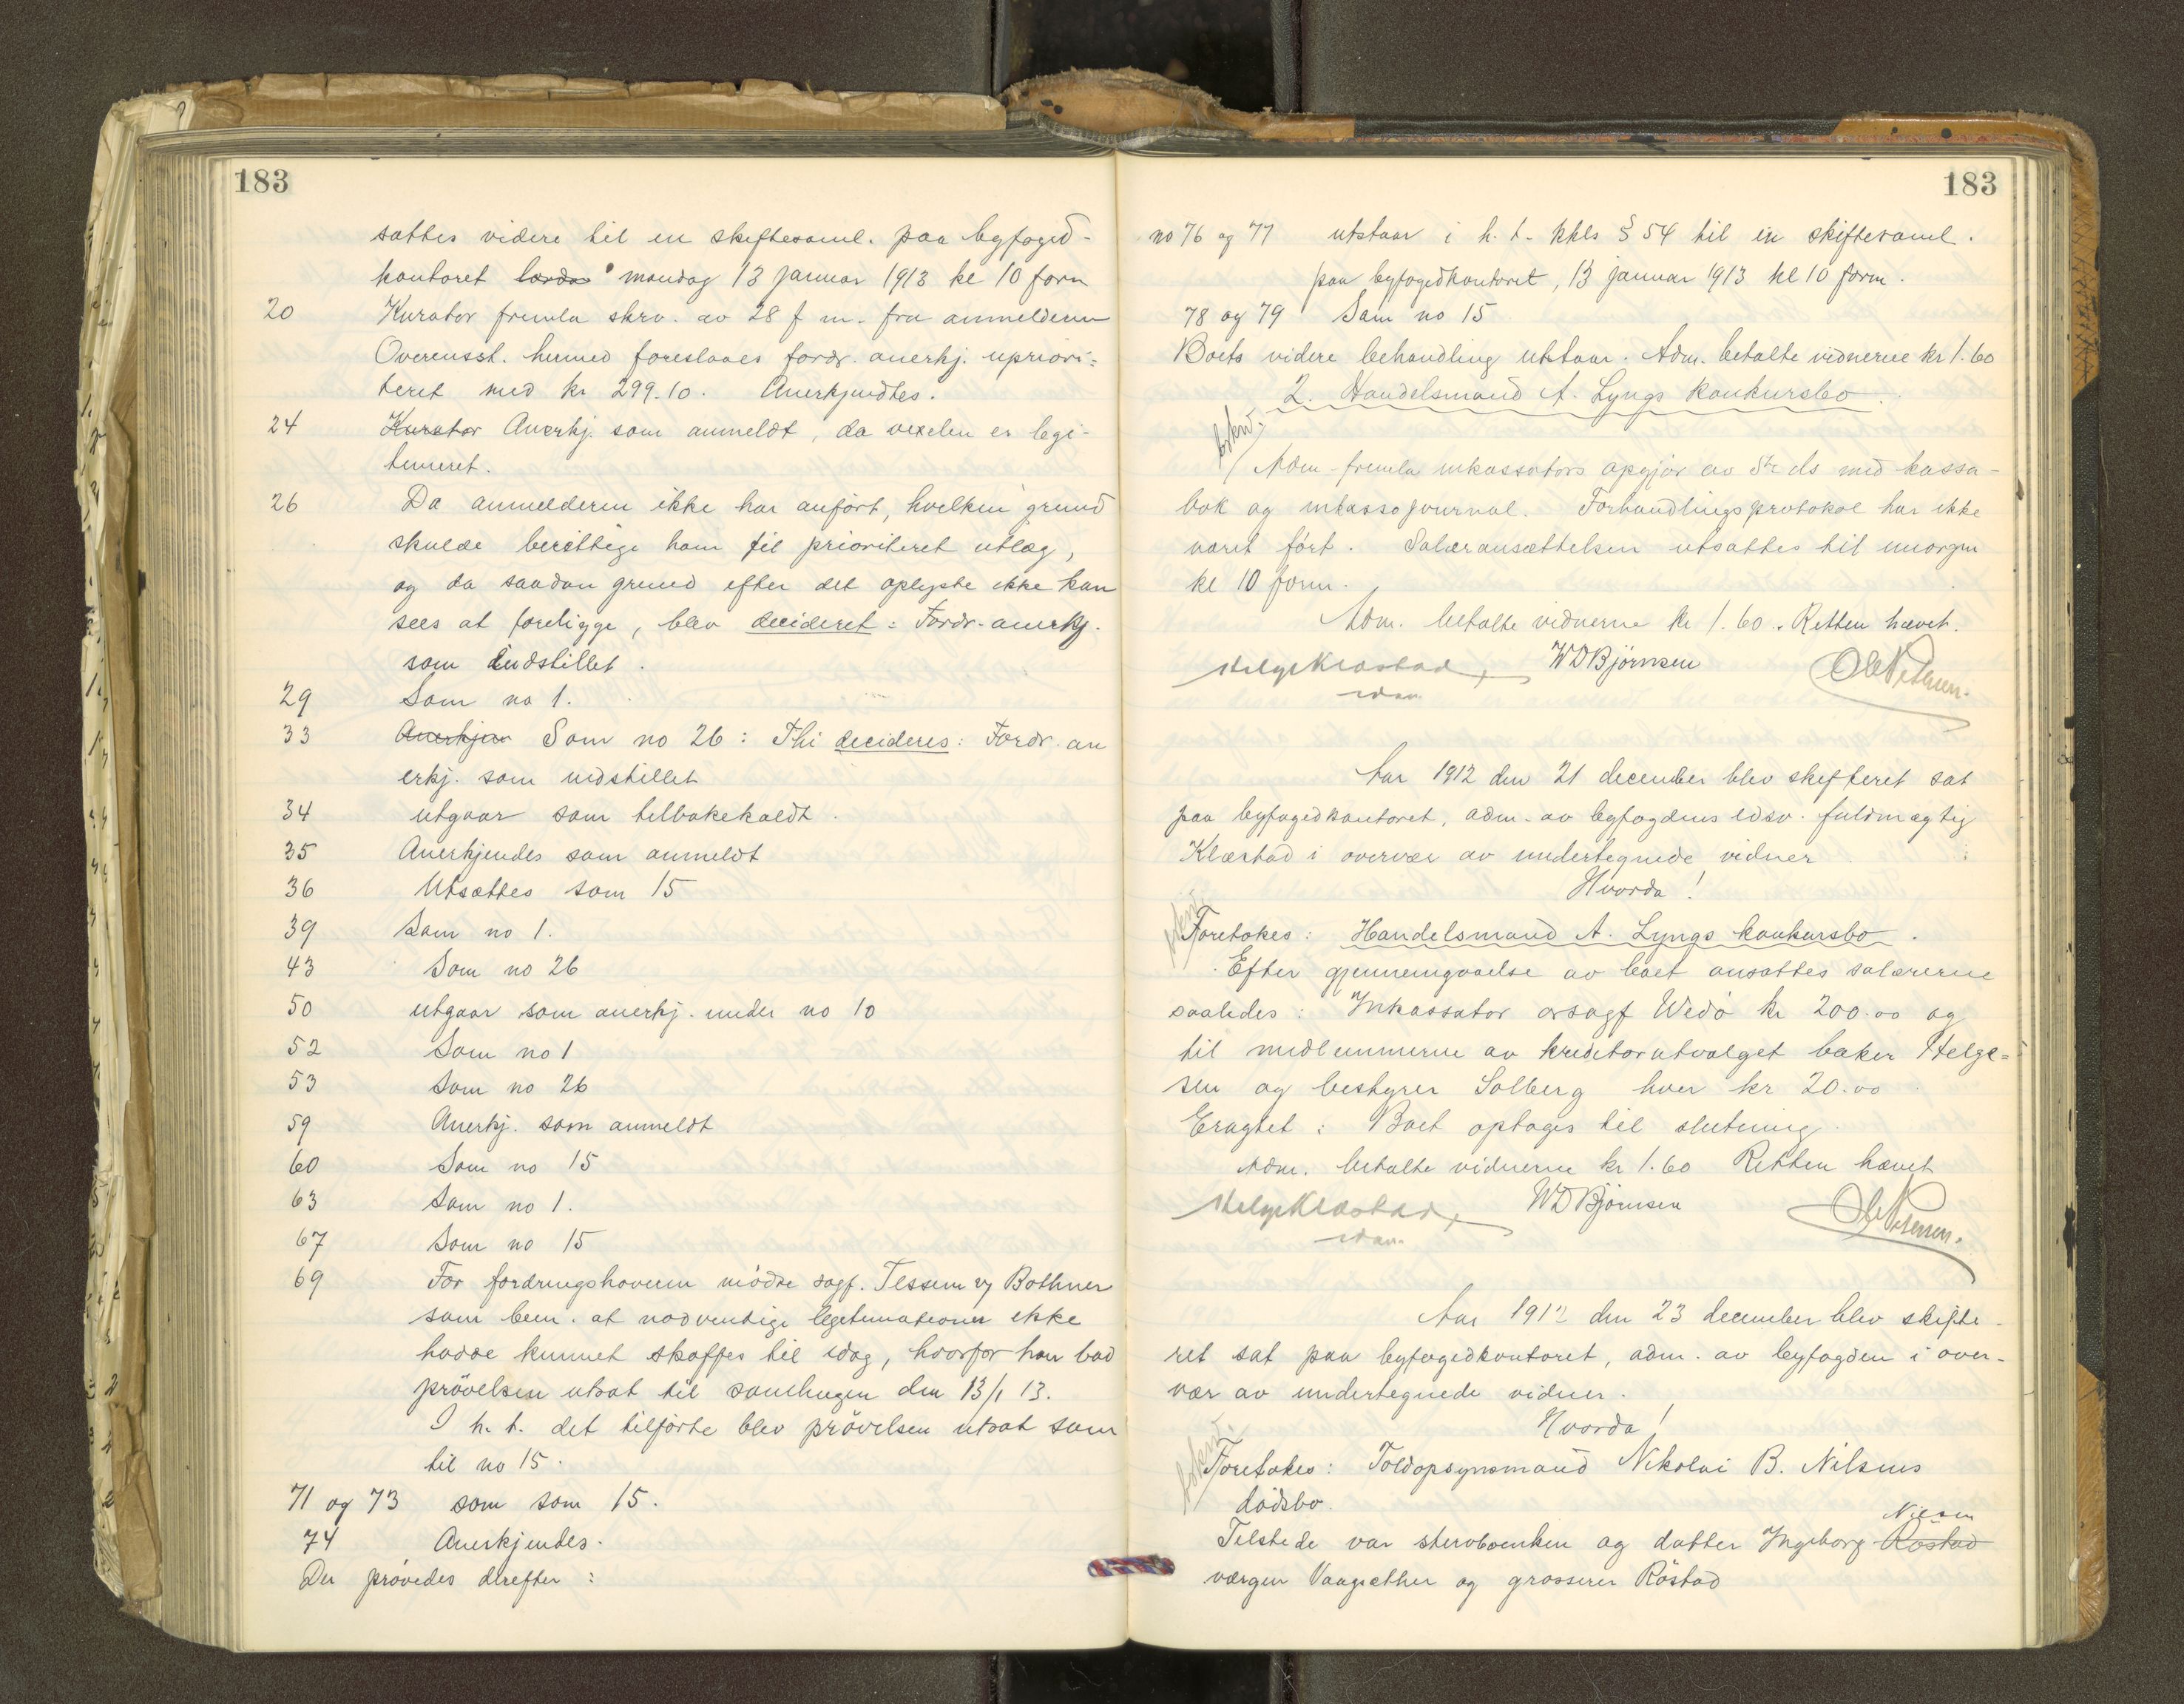 183
sattes videre til en skiftesaml. paa byfoged-
kontoret lørda mandag 13 januar 1913 kl 10 form
20 Kurator fremla skrv. av 28 f m. fra anmelderen
Overensst. hermed foreslaaes fordr. anerkj. upriori=
teret med kr 299.10. Anerkjendtes.
24 Kurator Anerkj. som anmeldt, da vexelen er legi-
timeret.
26 Da anmelderen ikke har anført, hvilken grund
skulde berettige ham til prioriteret utlæg,
og da saadan grund efter det oplyste ikke kan
sees at foreligge, blev decideret: Fordr. anerkj.
som indstillet.
29 Som no 1.
33 Anerkjen Som no 26: Thi decideres: Fordr. an
erkj. som indstillet
34 utgaar som tilbakekaldt.
35 Anerkjendes som anmeldt
36 Utsættes som 15
39 Som no 1.
43 Som no 26
50 utgaar som anerkj. under no 10
52 Som no 1
53 Som no 26
59 Anerkj. som anmeldt
60 Som no 15
63 Som no 1.
67 Som no 15
69 For fordringshaveren mødte sagf. Tessem v/ Bothner
som bem. at nødvendige legitimationer ikke
hadde kunnet skaffes til idag, hvorfor han bad
prøvelsen utsat til samlingen den 13/1 13.
I h. t. det tilførte blev prøvelsen utsat som
til no 15.
71 og 73 som som 15.
74 Anerkjendes.
Der prøvedes derefter:
183
no 76 og 77 utstaar i h. t. kkls § 54 til en skiftesaml.
paa byfogedkontoret, 13 januar 1913 kl 10 form.
78 og 79 Som no 15
Boets videre behandling utstaar. Adm. betalte vidnerne kr 1.60
2. Handelsmand A. Lyngs konkursbo.
Adm. fremla inkassators opgjør av ds med kassa-
bok og inkassojournal. Forhandlingsprotokol har ikke
været ført. Salæransættelsen utsattes til imorgen
kl 10 form.
Adm. betalte vidnerne kr 1.60. Retten hævet.
Helge Klæstad WDBjörnsen Ole Petersen.
edsv.
Aar 1912 den 21 december blev skifteret sat
paa byfogedkontoret, adm. av byfogdens edsv. fuldmægtig
Klæstad i overvær av undertegnede vidner
Hvorda!
Foretokes: Handelsmand A. Lyngs konkursbo.
Efter gjennemgaaelse av boet ansattes salærerne
saaledes: Inkassator orsagf Wedö kr 200.00 og
til medlemmerne av kreditorutvalget baker Helge=
sen og bestyrer Solberg hver kr 20.00
Eragtet: Boet optages til slutning.
Adm. betalte vidnerne kr 1.60 Retten hævet
Helge Klæstad WDBjörnsen Ole Petersen.
edsv.
Aar 1912 den 23 december blev skifte-
ret sat paa byfogedkontoret, adm. av byfogden i over-
vær av undertegnede vidner.
Hvorda!
Foretokes: Toldopsynsmand Nikolai B. Nilsens
dødsbo.
Nilsen
Tilstede var stervboenken og datter Ingeborg Röstad
værgen Vaagsæther og grosserer Röstad